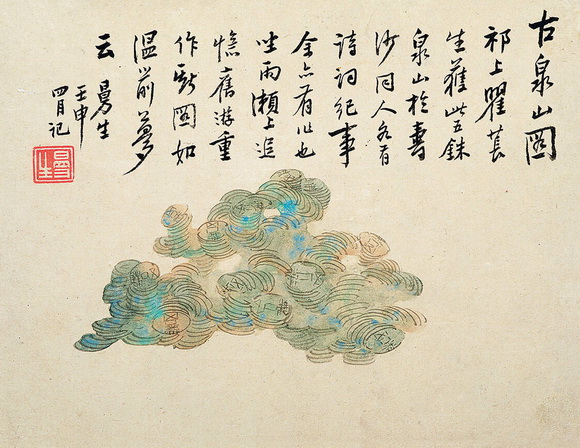 古泉山圖
祁上瞿萇
生獲此五銖
泉山於壽
沙同人各有
詩詞紀事
余亦有作也
坐雨瀨上追
憶舊游重
作圖如
溫前夢
云 曼生
壬申
四月記
曼生